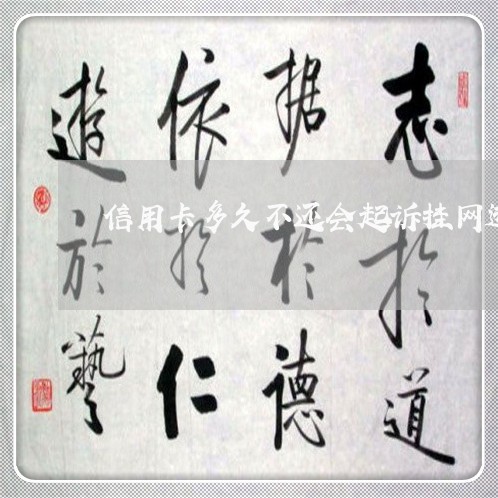 志於道
据於德
依於仁
遊於藝
信用卡多久不还会起诉挂网